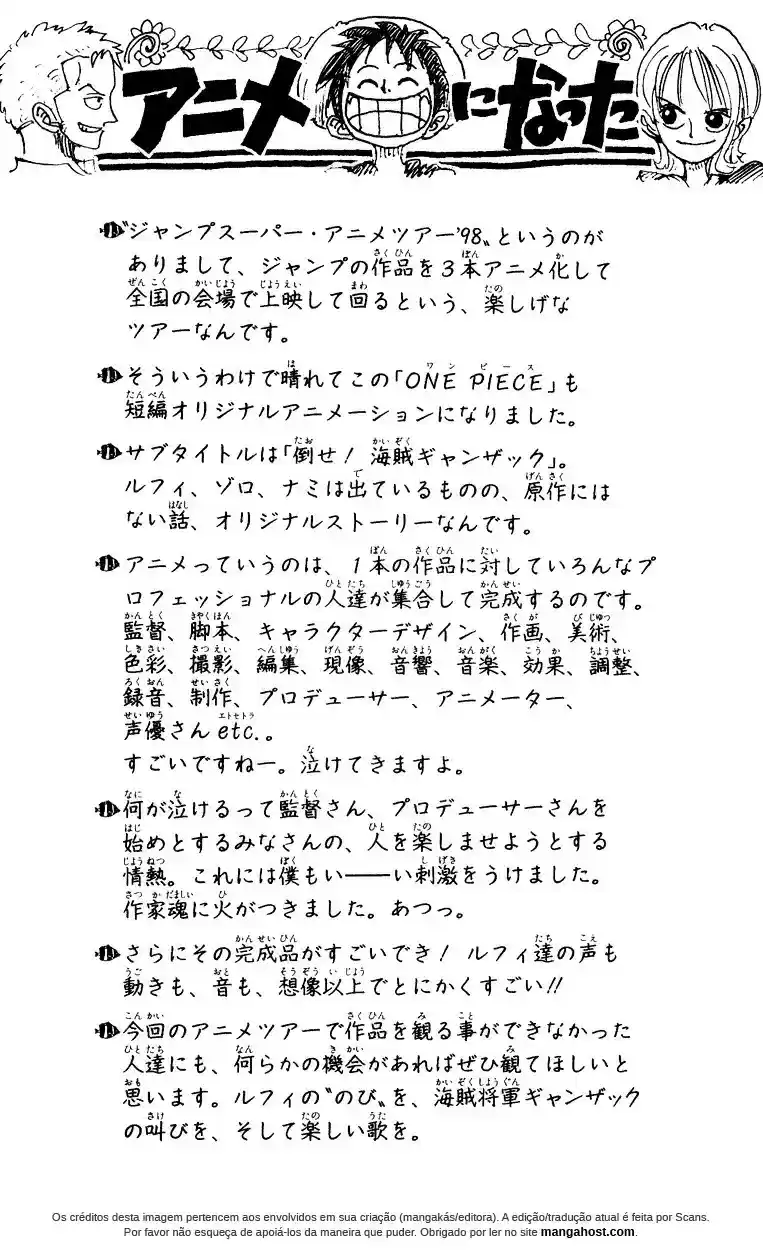 アニメになった
〝ジャンプスーパー・アニメツアー'98〟というのが
ありまして、ジャンプの作品を3本アニメ化して
全国の会場で上映して回るという、楽しげな
ツアーなんです。
そういうわけで晴れてこの「ONE PIECE」も
短編オリジナルアニメーションになりました。
サブタイトルは「倒せ! 海賊ギャンザック」。
ルフィ、ゾロ、ナミは出ているものの、原作には
ない話、オリジナルストーリーなんです。
アニメっていうのは、1本の作品に対していろんなプ
ロフェッショナルの人達が集合して完成するのです。
監督、脚本、キャラクターデザイン、作画、美術、
色彩、撮影、編集、現像、音響、音楽、効果、調整、
録音、制作、プロデューサー、アニメーター、
声優さん etc.。
すごいですねー。泣けてきますよ。
何が泣けるって監督さん、プロデューサーさんを
始めとするみなさんの、人を楽しませようとする
情熱。これには僕もい――い刺激をうけました。
作家魂に火がつきました。あつっ。
さらにその完成品がすごいでき! ルフィ達の声も
動きも、音も、想像以上でとにかくすごい!!
今回のアニメツアーで作品を観る事ができなかった
人達にも、何らかの機会があればぜひ観てほしいと
思います。ルフィの〝のび〟を、海賊将軍ギャンザック
の叫びを、そして楽しい歌を。
Os créditos desta imagem pertencem aos envolvidos em sua criação (mangakás/editora). A edição/tradução atual é feita por Scans.
Por favor não esqueça de apoiá-los da maneira que puder. Obrigado por ler no site mangahost.com.